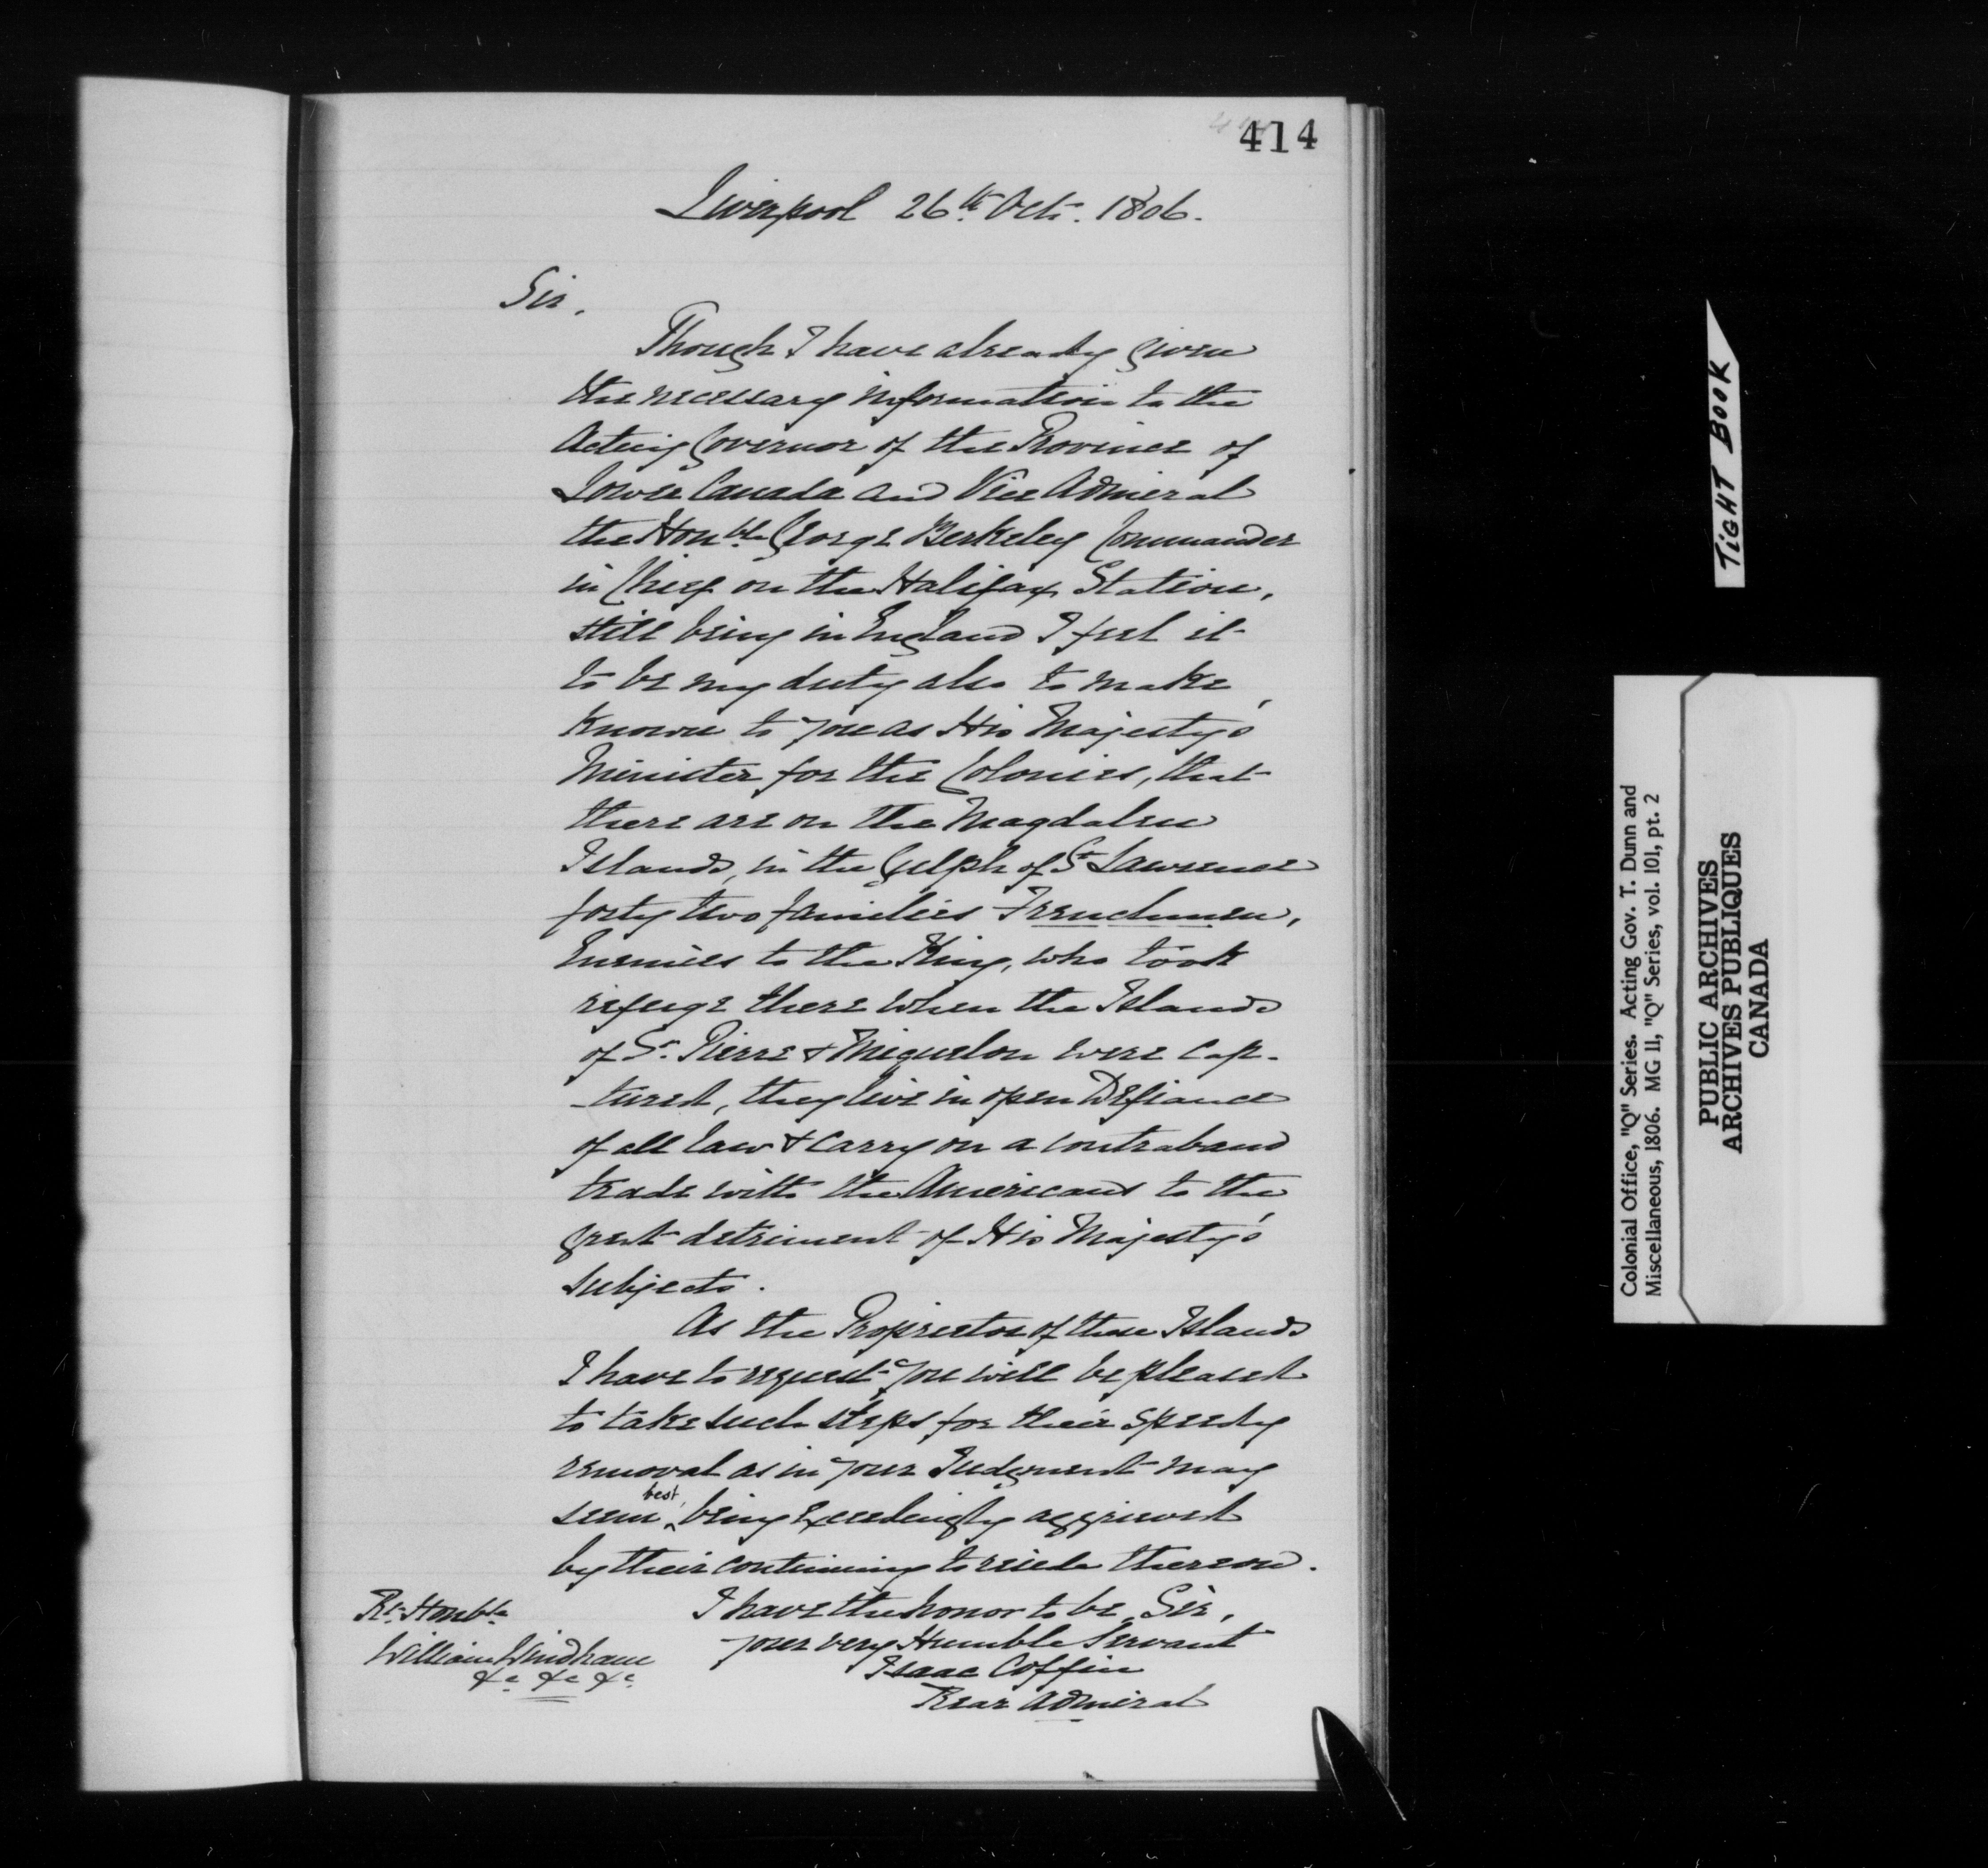 414
Liverpool 26th Oct. 1806.
Sir,
Though I have already given
the necessary information to the
Acting Governor of the Province of
Lower Canada and Vice Admiral
the Honble George Berkeley Commander
in Chief on the Halifax Station,
still being in England I feel it
to be my duty also to make
known to you as His Majesty's
Minister for the Colonies, that
there are on the Magdalen
Islands, in the Gulph of St Lawrence
forty two families Frenchmen,
Enemies to the King, who took
refuge there when the Islands
of St. Pierre & Miquelon were cap-
-tured, they live in open Defiance
of all law & carry on a contraband
trade with the Americans to the
great detriment of His Majesty's
subjects.
As the Proprietor of these Islands
I have to request you will be pleased
to take such steps for their speedy
removal as in your Judgment may
seem best, being Exceedingly aggrieved
by their continuing to reside thereon.
I have the honor to be, Sir,
your very Humble Servant
Isaac Coffin
Rear Admiral
Rt. Honble
William Windham
&c &c &c
TIGHT BOOK
Colonial Office, "Q" Series. Acting Gov. T. Dunn and
Miscellaneous, 1806. MG 11, "Q" Series, vol. 101, pt. 2
PUBLIC ARCHIVES
ARCHIVES PUBLIQUES
CANADA